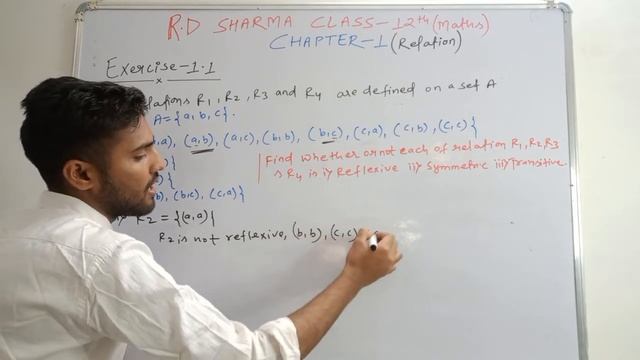 R.D SHARMA CLASS-12th (Maths)
CHAPTER-1 (Relation)
Exercise-1.1
R1, R2, R3 and R4 are defined on a set A
A={a,b,c}.
(a,b), (a,c), (b,b), (b,c), (c,a), (c,b), (c,c)}
Find whether or not each of relation R1, R2, R3
& R4 is i) Reflexive ii) Symmetric iii) transitive.
(b,c), (c,a)}
R2 = {(a,a)}
R2 is not reflexive, (b,b), (c,c)